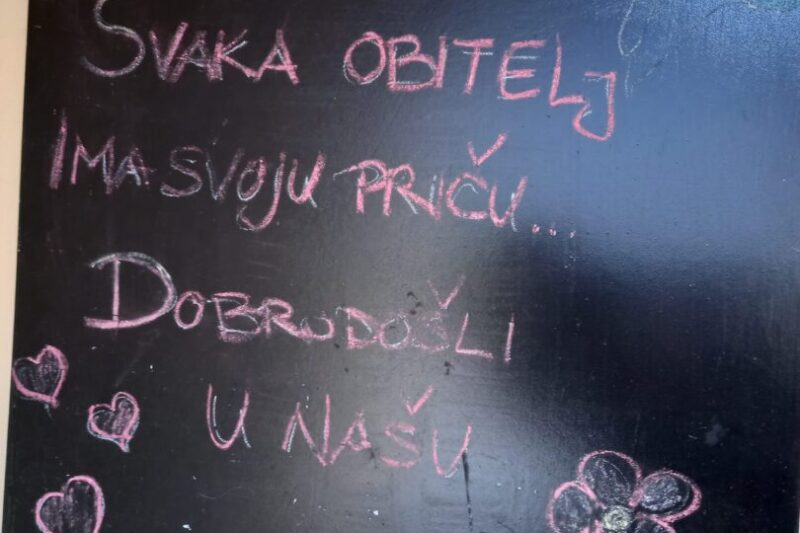 SVAKA OBITELJ
IMA SVOJU PRIČU...
DOBRODOŠLI
U NAŠU